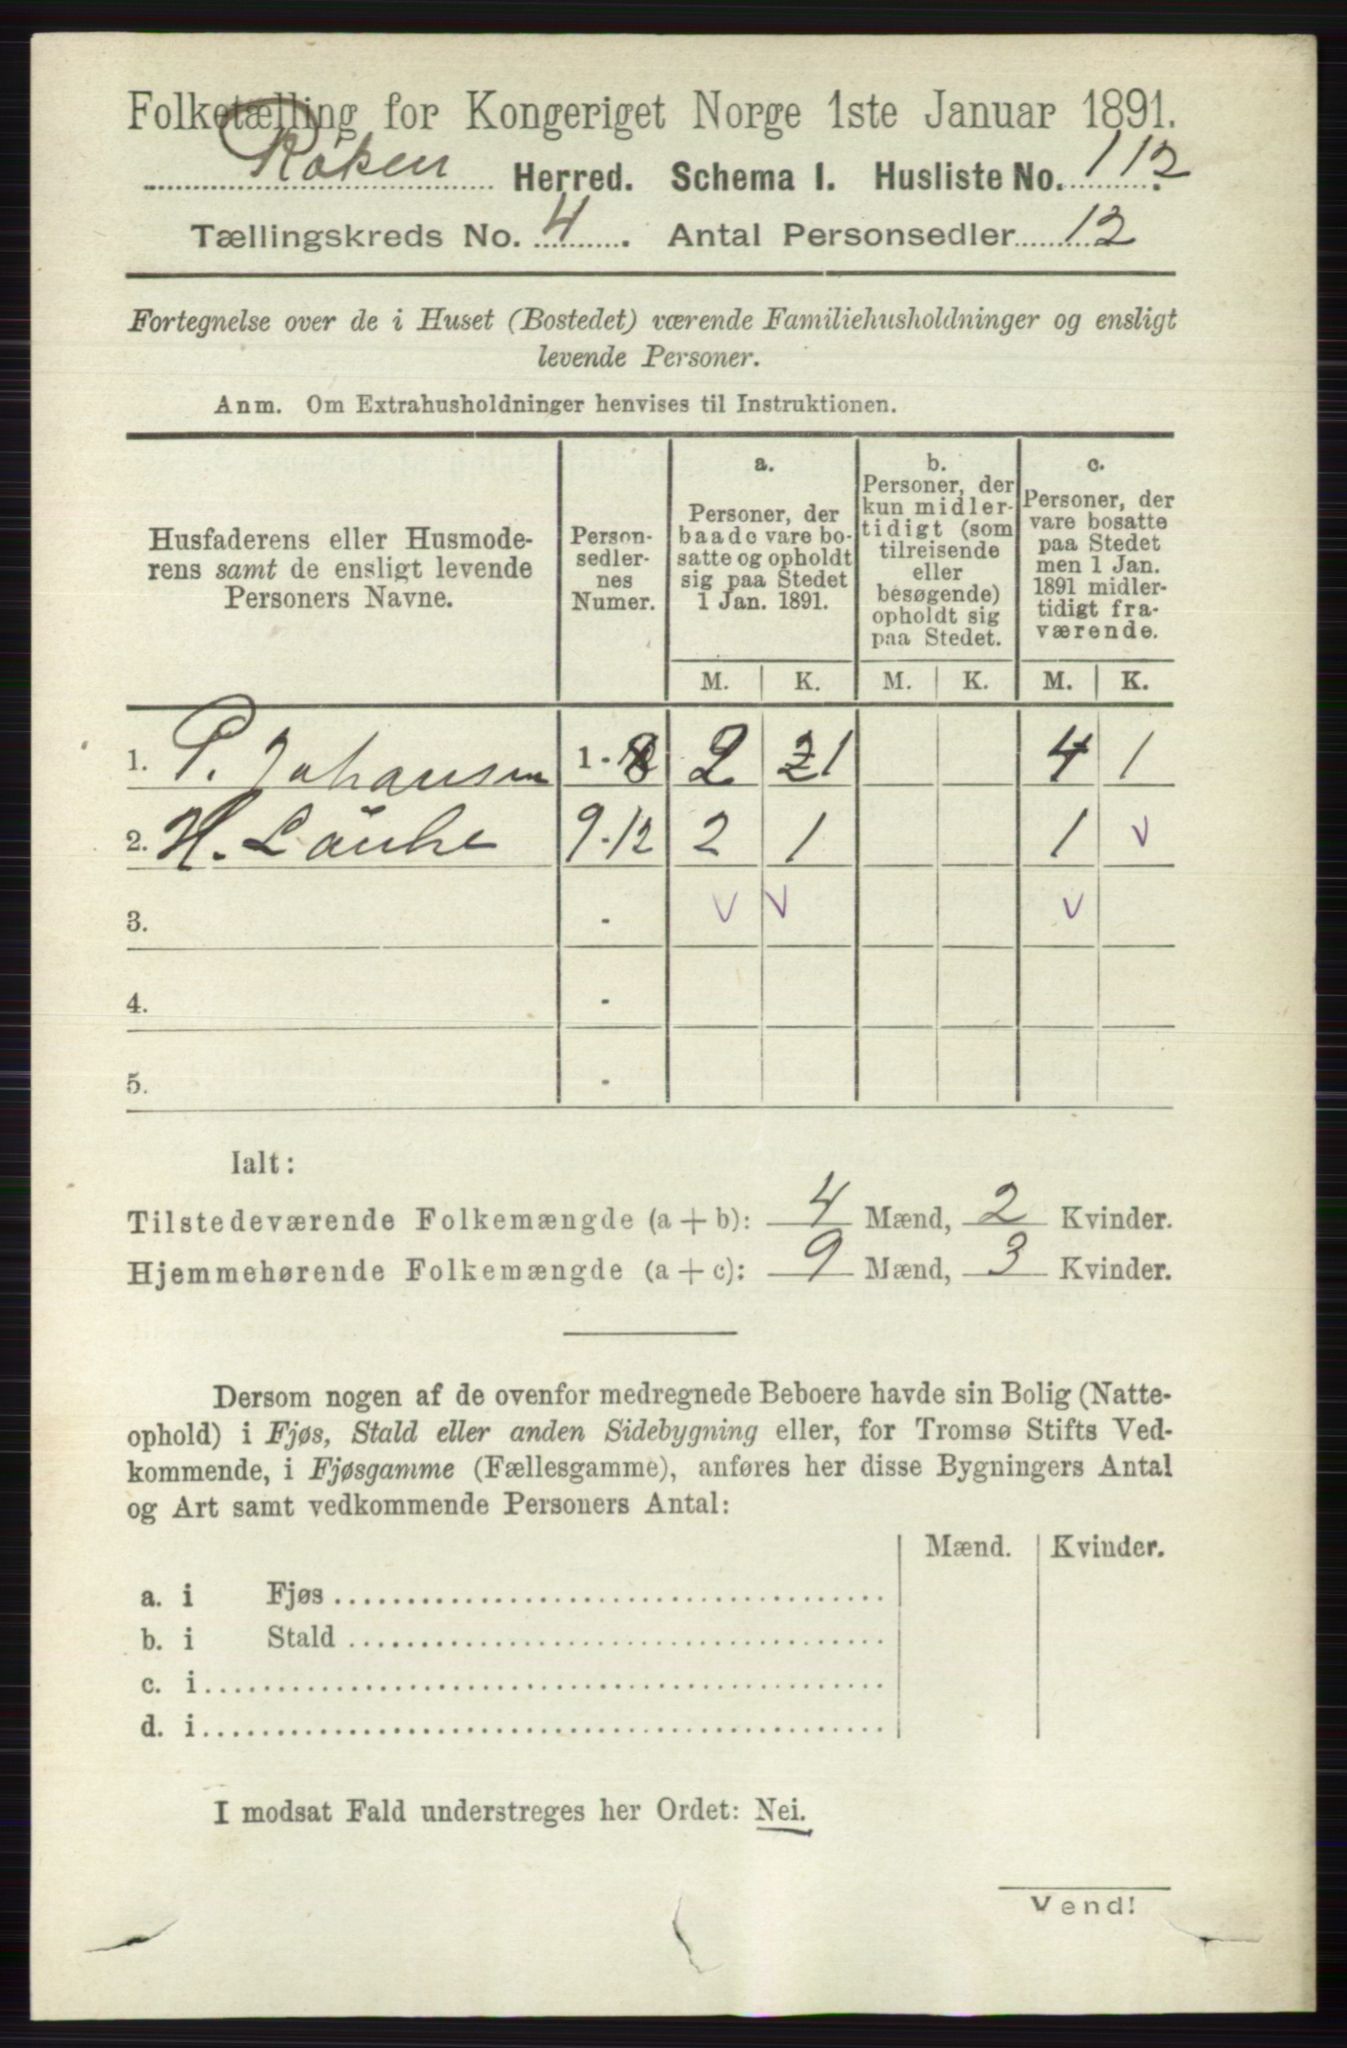 Folketælling for Kongeriget Norge 1ste Januar 1891.
Röken Herred. Schema I. Husliste No. 112
Tællingskreds No. 4. Antal Personsedler 12
Fortegnelse over de i Huset (Bostedet) værende Familiehusholdninger og ensligt
levende Personer.
Anm. Om Extrahusholdninger henvises til Instruktionen.
Husfaderens eller Husmode-
rens samt de ensligt levende
Personers Navne.
Person-
sedler-
nes
Numer.
a.
Personer, der
baade vare bo-
satte og opholdt
sig paa Stedet
1 Jan. 1891.
b.
Personer, der
kun midler-
tidigt (som
tilreisende
eller
besøgende)
opholdt sig
paa Stedet.
c.
Personer, der
vare bosatte
paa Stedet
men 1 Jan.
1891 midler-
tidigt fra-
værende.
M. K. M. K. M. K.
1. P. Johansen 1-8 2 2 1 4 1
2. H. 9-12 2 1 1 v
3. - v v v
4. -
5. -
Ialt:
Tilstedeværende Folkemængde (a + b): 4 Mænd, 2 Kvinder.
Hjemmehørende Folkemængde (a + c): 9 Mænd, 3 Kvinder.
Dersom nogen af de ovenfor medregnede Beboere havde sin Bolig (Natte-
ophold) i Fjøs, Stald eller anden Sidebygning eller, for Tromsø Stifts Ved-
kommende, i Fjøsgamme (Fællesgamme), anføres her disse Bygningers Antal
og Art samt vedkommende Personers Antal:
Mænd. Kvinder.
a. i Fjøs
b. i Stald
c. i
d. i
I modsat Fald understreges her Ordet: Nei.
Vend!